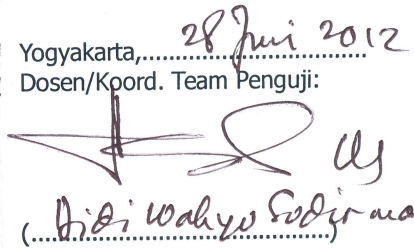 Yogyakarta,.....28 Juni 2012
Dosen/Koord. Team Penguji:
(....Didi Wahyu Sudirman....)